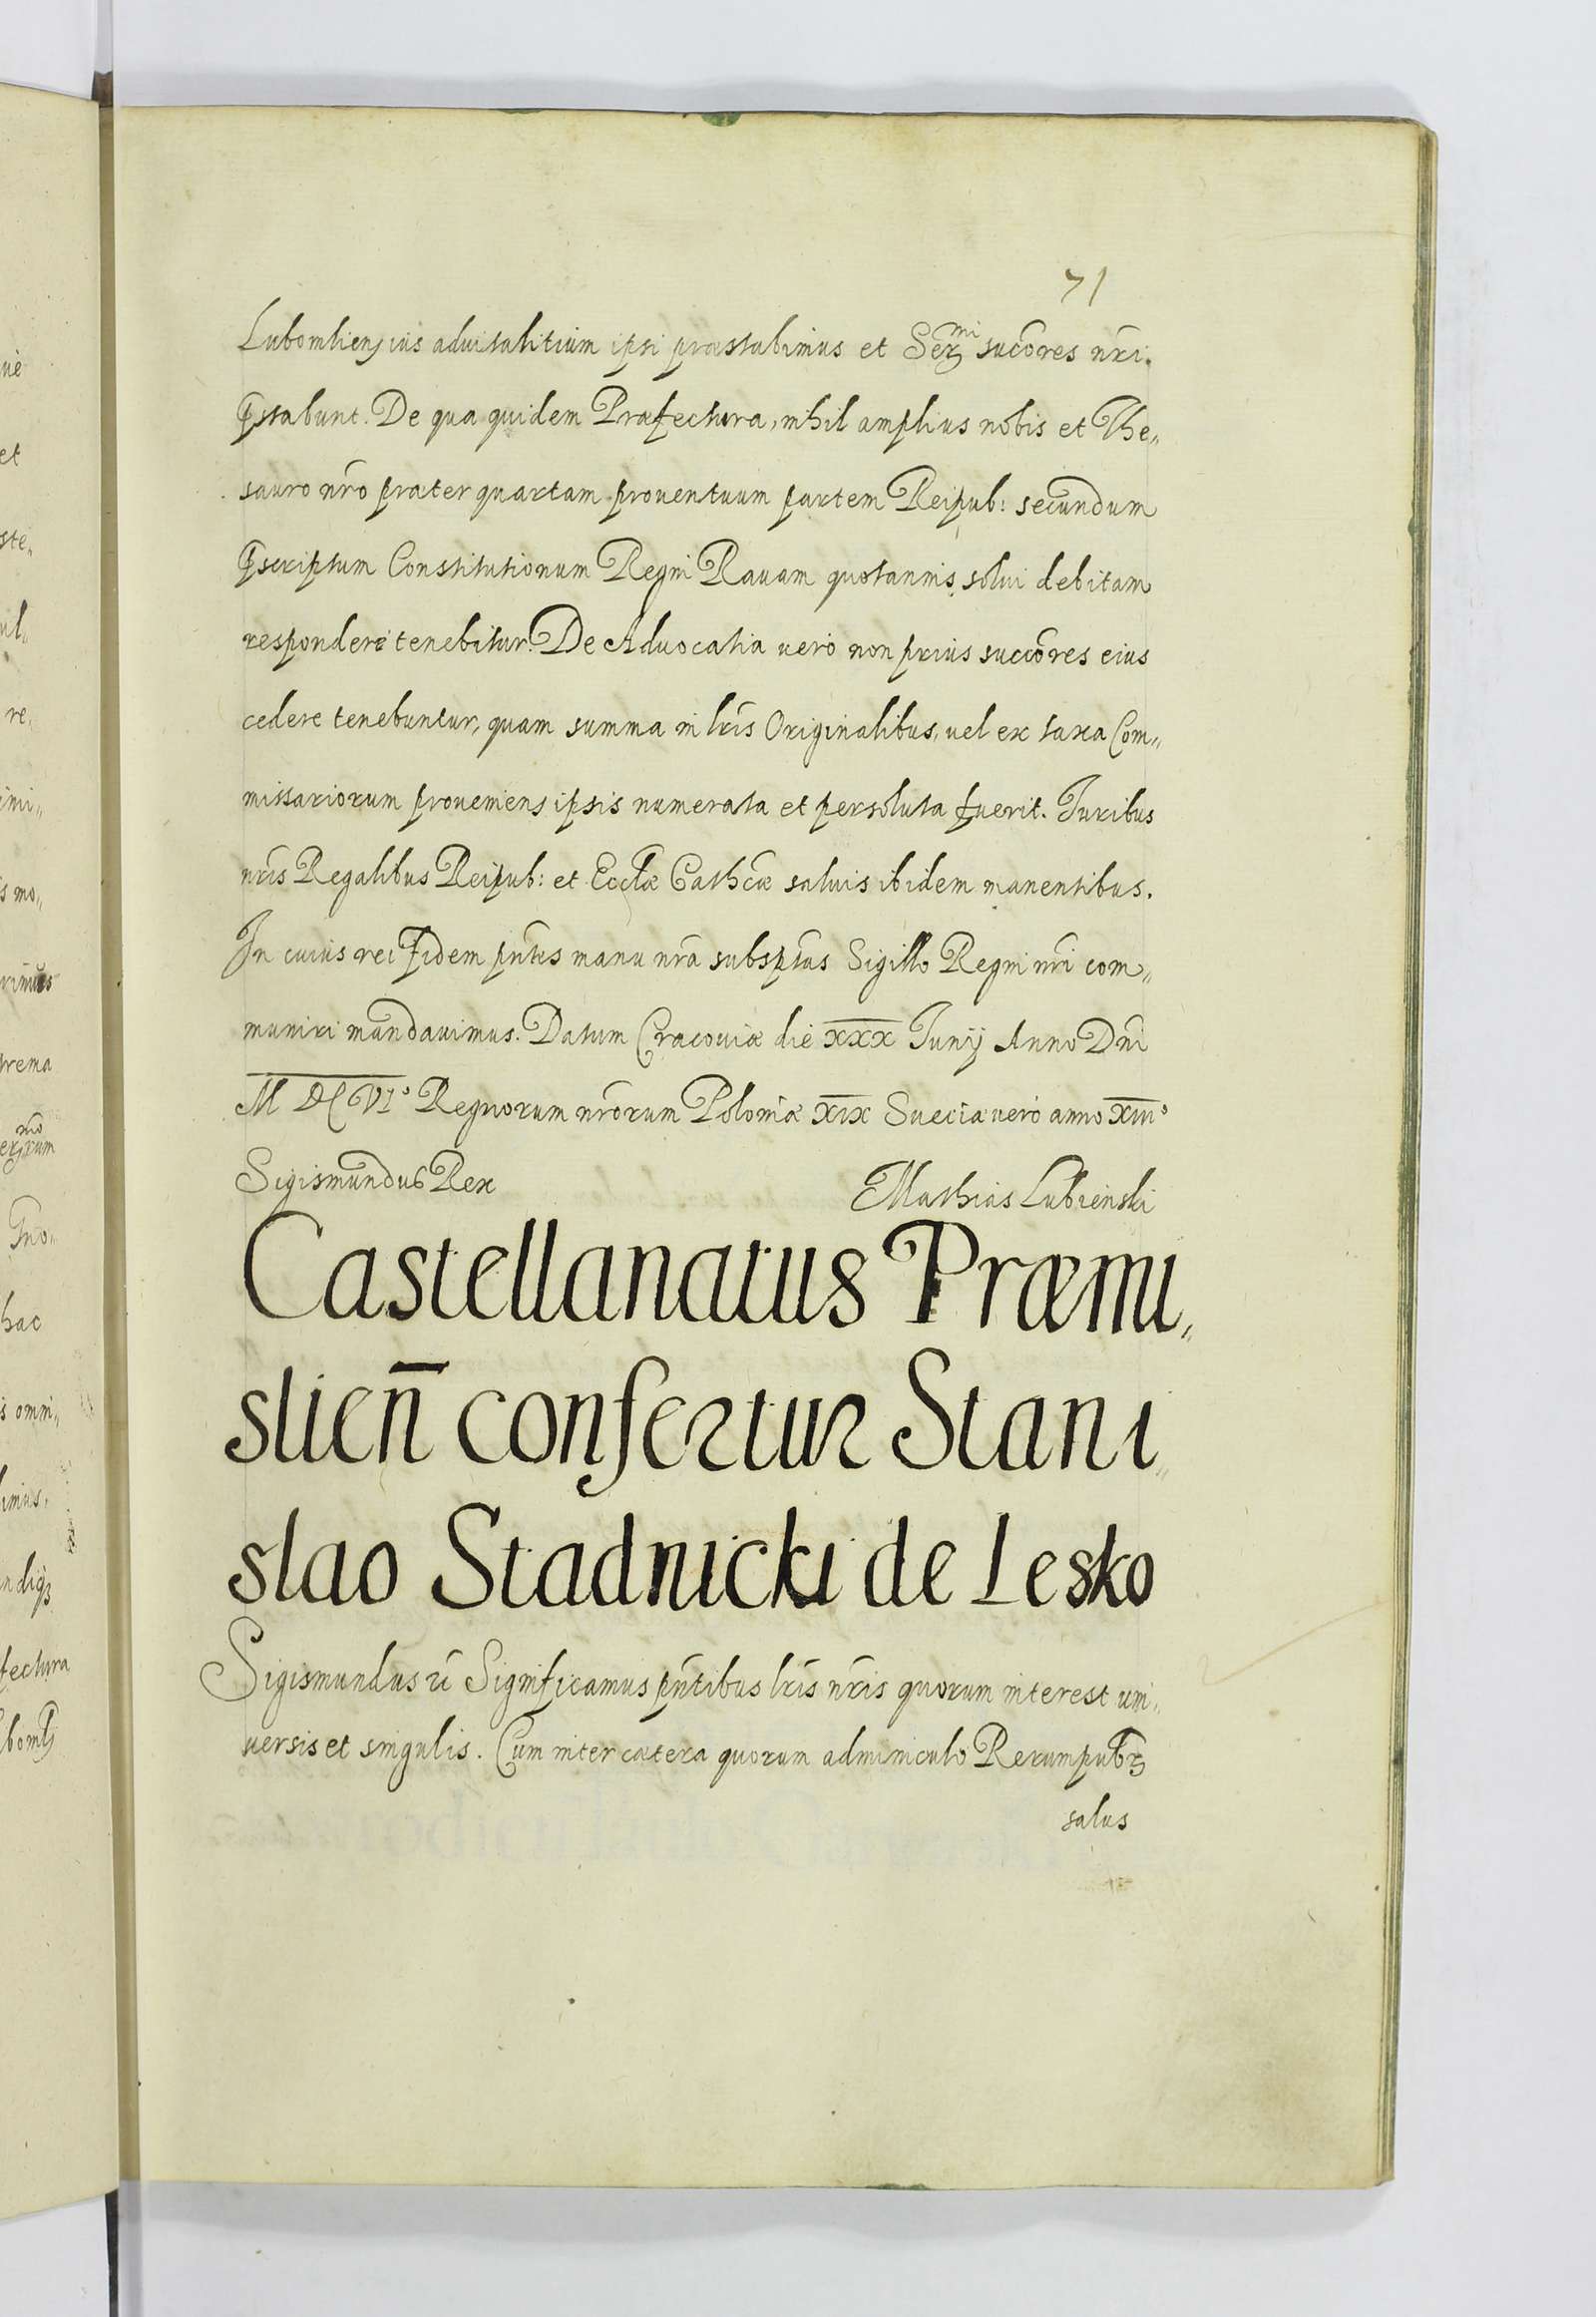 71
Lubomlien̄ ius aduitalitium ipsi præstabimus et Serm̄i succ̄ores nr̄i.
p̄stabunt. De qua quidem Præfectura, nihil amplius nobis et The„
sauro nr̄o præter quartam prouentuum partem Reipub: secundum
p̄scriptum Constitutionum Regni Rauam quotannis solui debitam
respondere tenebitur. De Aduocatia vero non prius succōres eius
cedere tenebuntur, quam summa in lr̄is Originalibus, uel ex taxa Com„
missariorum proueniens ipsis numerata et persoluta fuerit. Iuribus
nr̄is Regalibus Reipub: et Eccl̄æ Cathc̄æ saluis ibidem manentibus.
In cuius rei fidem pn̄tes manu nr̄a subsp̄tas Sigillo Regni nr̄i com„
muniri mandauimus. Datum Cracouiæ die XXX Iunij Anno Dn̄i
M DC VIº Regnorum nr̄orum Poloniæ XIX Sueciæ uero anno XIIIº
Sigismundus Rex Mathias Lubienski
Castellanatus Præmi„
slien̄ confertur Stani„
slao Stadnicki de Lesko
Sigismundus rc̄ Significamus pn̄tibus lr̄is nr̄is quorum interest uni„
uersis et singulis. Cum inter cætera quorum adminiculo Rerumpub̄ꝝ
salus
ue
et
ste„
ul„
re„
imi„
s mo„
rimus
rema
hac
s omni„
limus,
fectura